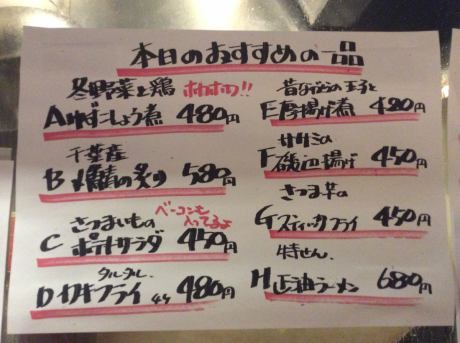 本日のおすすめの一品
冬野菜と鶏 ポカポカ!!
Aゆずこしょう煮 480円
千葉産
B 〆鯖の炙り 580円
さつまいもの ベーコンも入ってるよ
C ポテトサラダ 450円
タルタル
D カキフライ 4ヶ 480円
昔ながらの玉子と
E厚揚げ煮 420円
ササミの
F 磯辺揚げ 450円
さつま芋の
Gスティックフライ 450円
特せん
H 正油ラーメン 680円